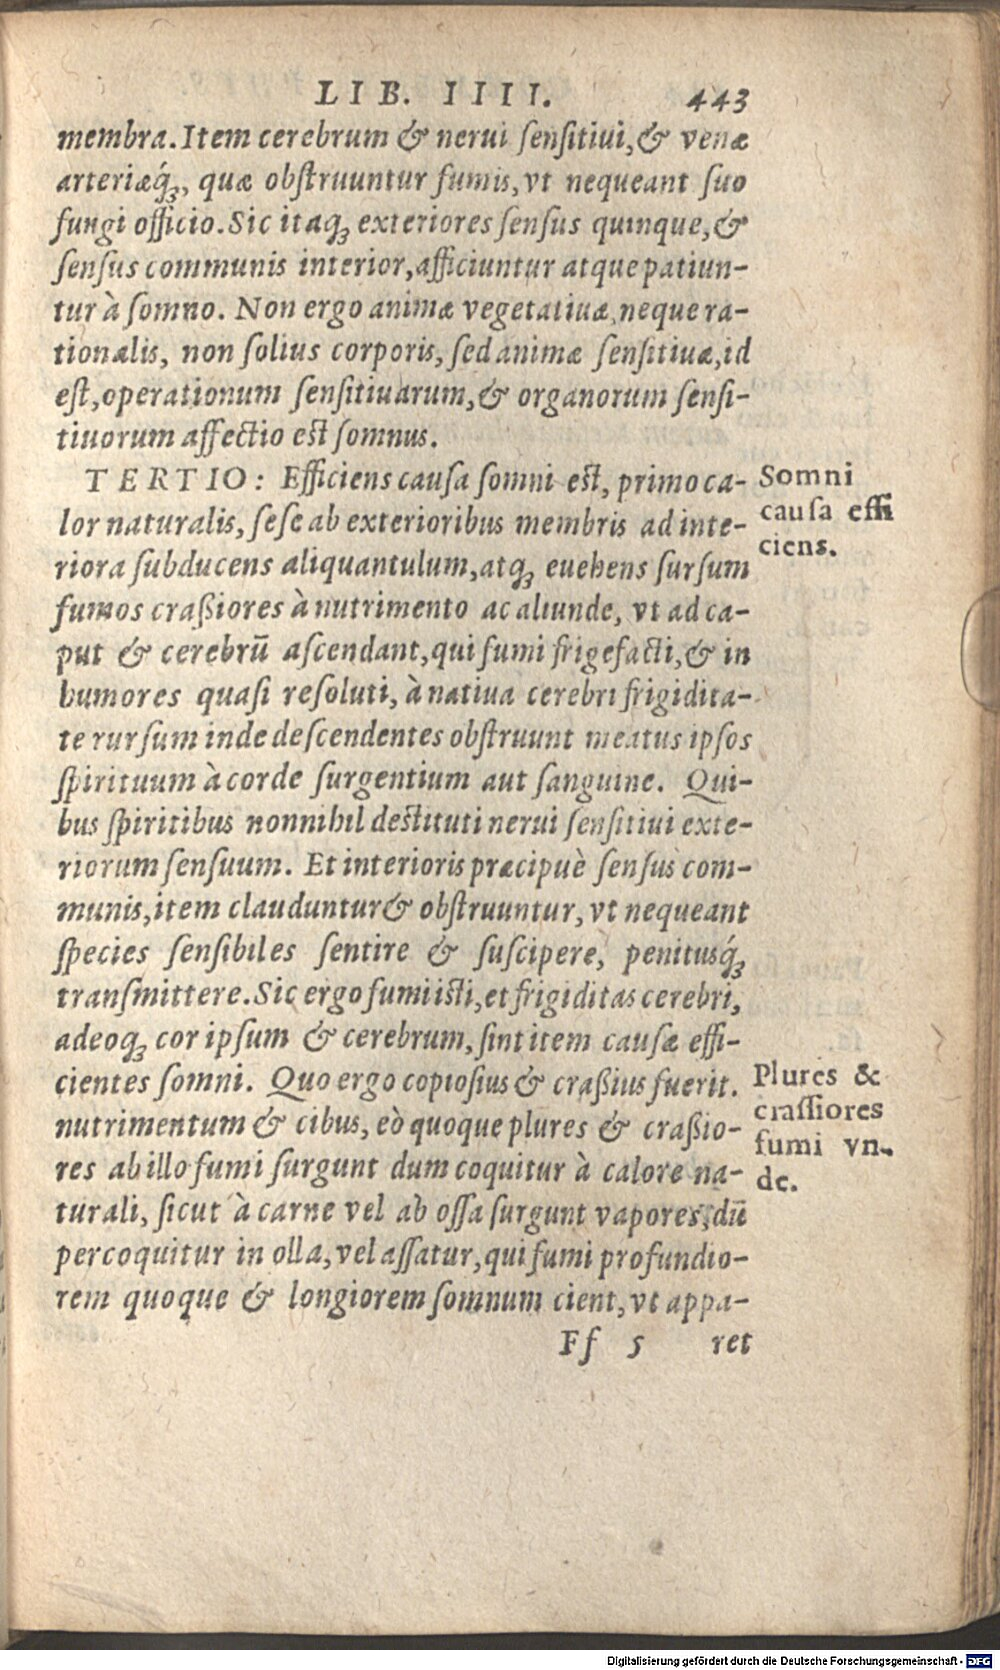 LIB. IIII. 443
membra. Item cerebrum & nerui ſenſitiui, & venæ
arteriæq́ꝫ, quæ obſtruuntur fumis, vt nequeant ſuo
fungi officio. Sic itaqꝫ exteriores ſenſus quinque, &
ſenſus communis interior, afficiuntur atque patiun-
tur à ſomno. Non ergo animæ vegetatiuæ, neque ra-
tionalis, non ſolius corporis, ſed animæ ſenſitiuæ, id
eſt, operationum ſenſitiuarum, & organorum ſenſi-
tiuorum affectio eſt ſomnus.
TERTIO: Efficiens cauſa ſomni eſt, primo ca-
lor naturalis, ſeſe ab exterioribus membris ad inte-
riora ſubducens aliquantulum, atqꝫ euehens ſurſum
fumos craßiores à nutrimento ac aliunde, vt ad ca-
put & cerebrū aſcendant, qui fumi frigefacti, & in
humores quaſi reſoluti, à natiua cerebri frigidita-
te rurſum inde deſcendentes obſtruunt meatus ipſos
ſpirituum à corde ſurgentium aut ſanguine. Qui-
bus ſpiritibus nonnihil deſtituti nerui ſenſitiui exte-
riorum ſenſuum. Et interioris præcipuè ſenſus com-
munis, item clauduntur & obſtruuntur, vt nequeant
ſpecies ſenſibiles ſentire & ſuſcipere, penitusq́ꝫ
tranſmittere. Sic ergo fumi iſti, et frigiditas cerebri,
adeoqꝫ cor ipſum & cerebrum, ſint item cauſæ effi-
cientes ſomni. Quo ergo copioſius & craßius fuerit.
nutrimentum & cibus, eò quoque plures & craßio-
res ab illo fumi ſurgunt dum coquitur à calore na-
turali, ſicut à carne vel ab oſſa ſurgunt vapores, dū
percoquitur in olla, vel aſſatur, qui fumi profundio-
rem quoque & longiorem ſomnum cient, vt appa-
Ff 5 ret
Somni
cauſa effi
ciens.
Plures &
craſſiores
fumi vn-
de.
Digitalisierung gefördert durch die Deutsche Forschungsgemeinschaft - DFG